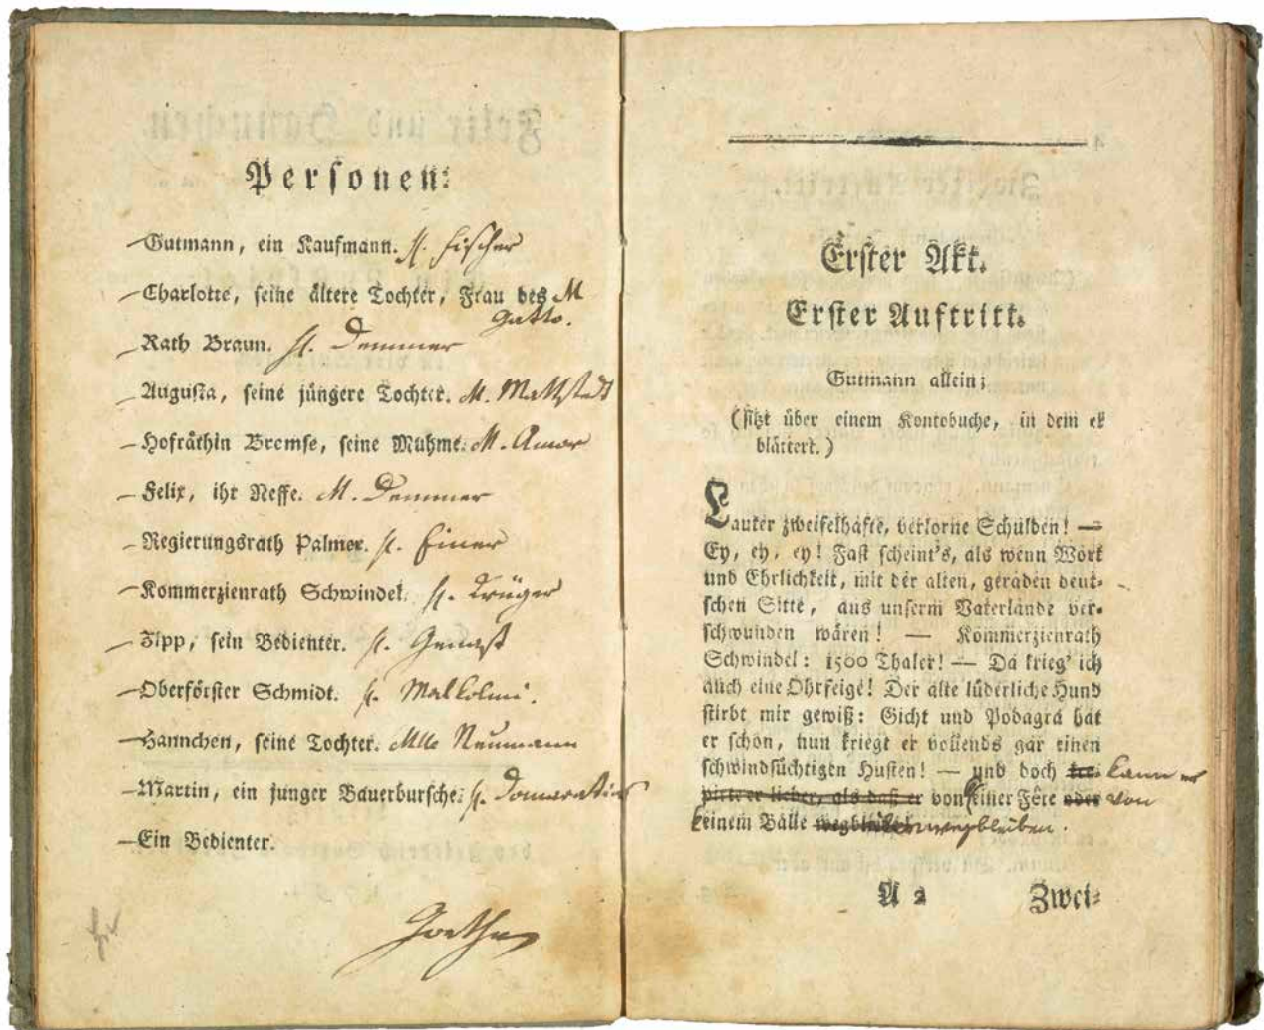 Personen:
Gutmann, ein Kaufmann. H. Fischer
Charlotte, seine ältere Tochter, Frau des M
Gatto.
Rath Braun. H. Demmer
Augusta, seine jüngere Tochter. M. Mattstedt
Hofräthin Bremse, seine Muhme. M. Amor
Felix, ihr Neffe. M. Demmer
Regierungsrath Palmer. H. Einer
Kommerzienrath Schwindel. H. Krüger
Zipp, sein Bedienter. H. Genast
Oberförster Schmidt. H. Malkolmi.
Hannchen, seine Tochter. Mlle Neumann
Martin, ein junger Bauerbursche. H.
Ein Bedienter.
Goethe
Erster Akt.
Erster Auftritt.
Gutmann allein;
(sitzt über einem Kontobuche, in dem er
blättert.)
Lauter zweifelhafte, verlorne Schulden! —
Ey, ey, ey! Fast scheint's, als wenn Wort
und Ehrlichkeit, mit der alten, geraden deut-
schen Sitte, aus unserm Vaterlande ver-
schwunden wären! — Kommerzienrath
Schwindel: 1500 Thaler! — Da krieg' ich
auch eine Ohrfeige! Der alte lüderliche Hund
stirbt mir gewiß: Gicht und Podagra hat
er schon, nun kriegt er vollends gar einen
schwindsüchtigen Husten! — und doch kann er
pirte er lieber, als daß er von keiner Fete oder von
keinem Balle wegbleiben.
A 2 Zwei-